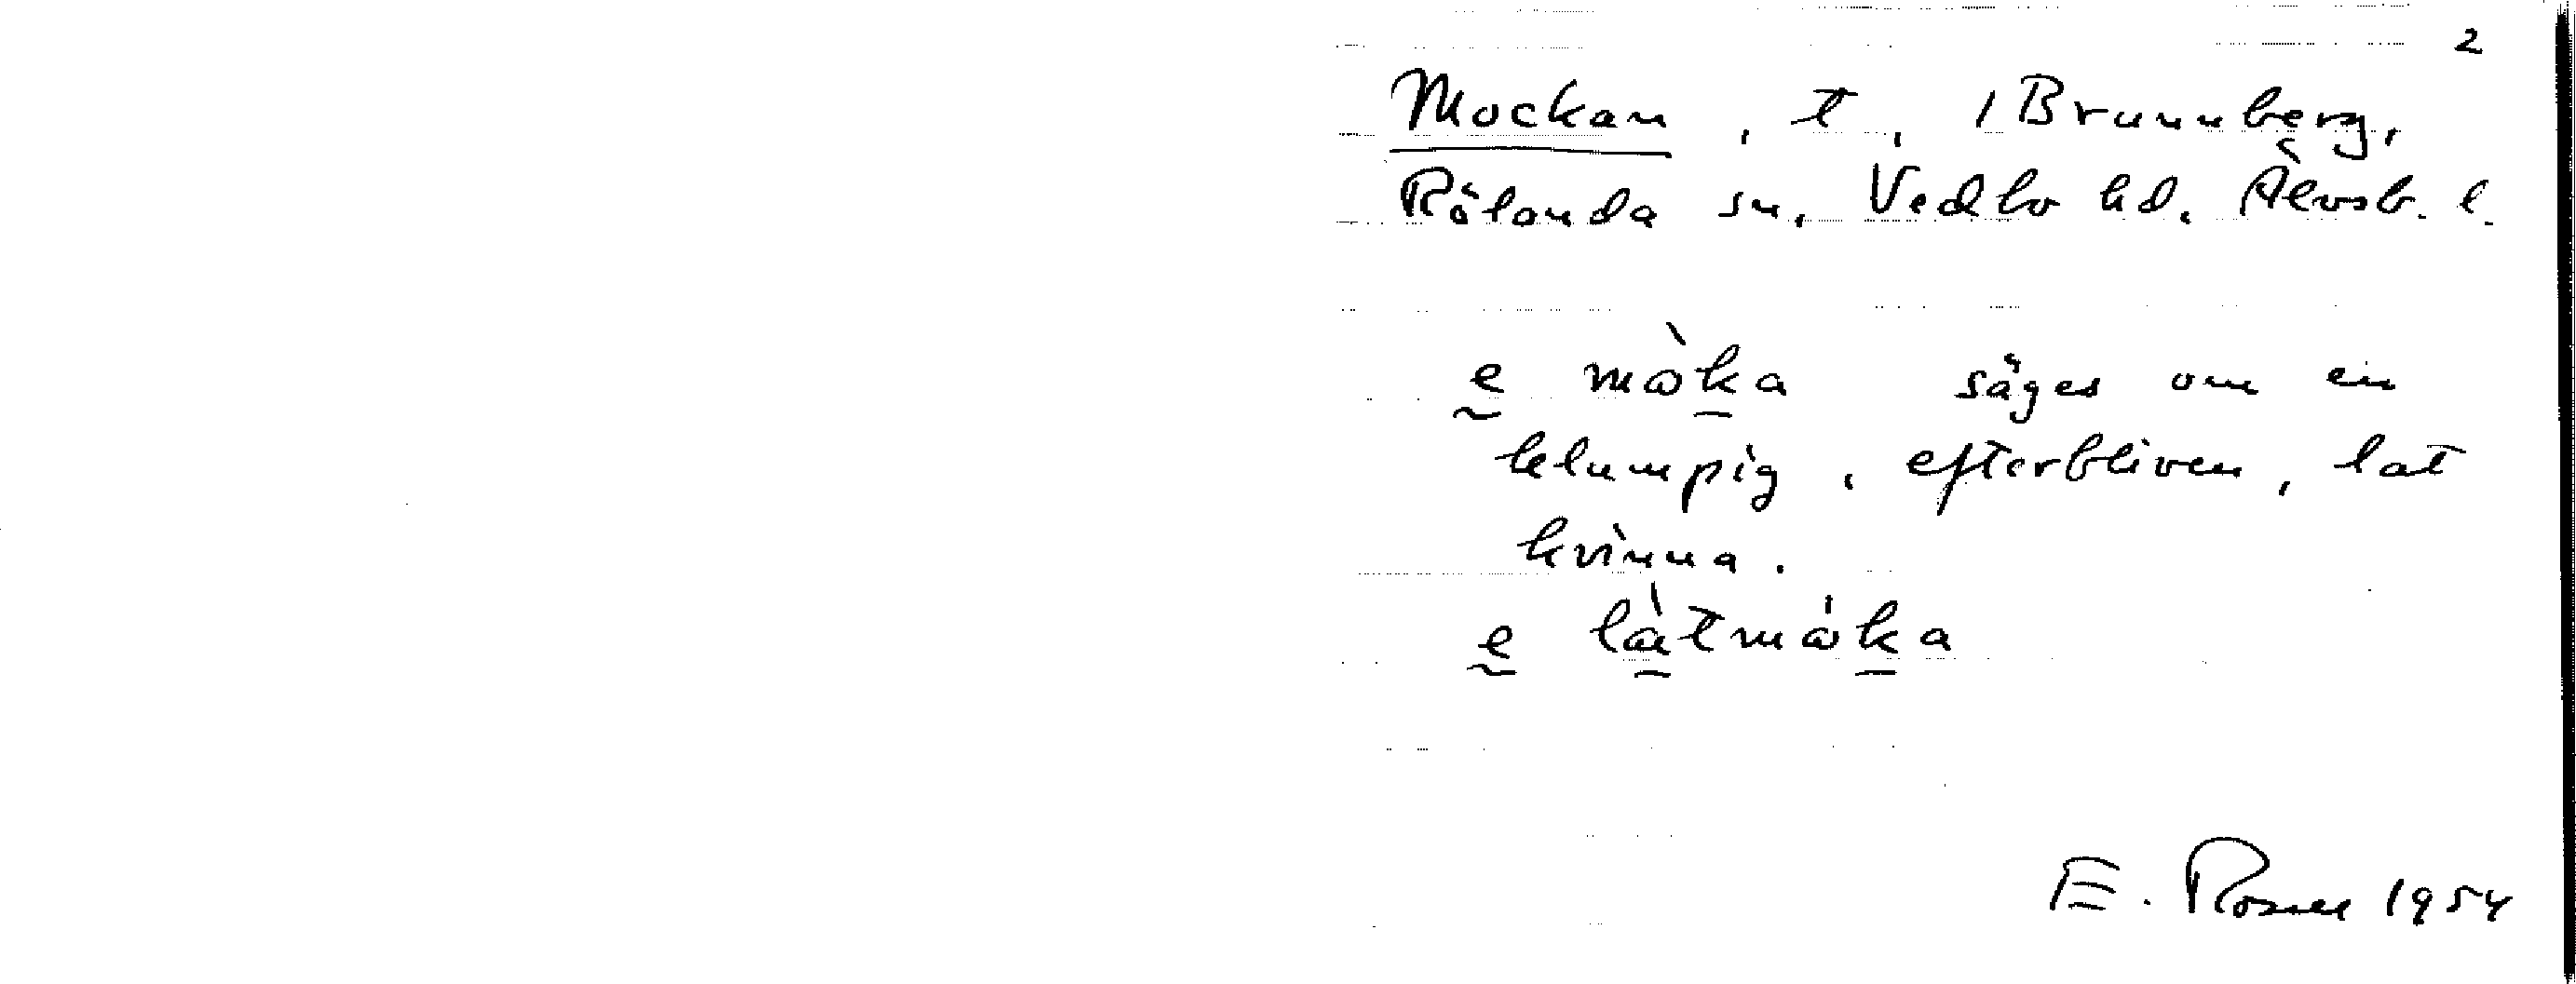 2
Mockan, t, i Brunnberg,
Rölanda sn. Vedbo hd. Älvsb. l.
e mòka säges om en
klumpig, efterbliven, lat
kvinna.
e làtmòka
E. Rosell 1954